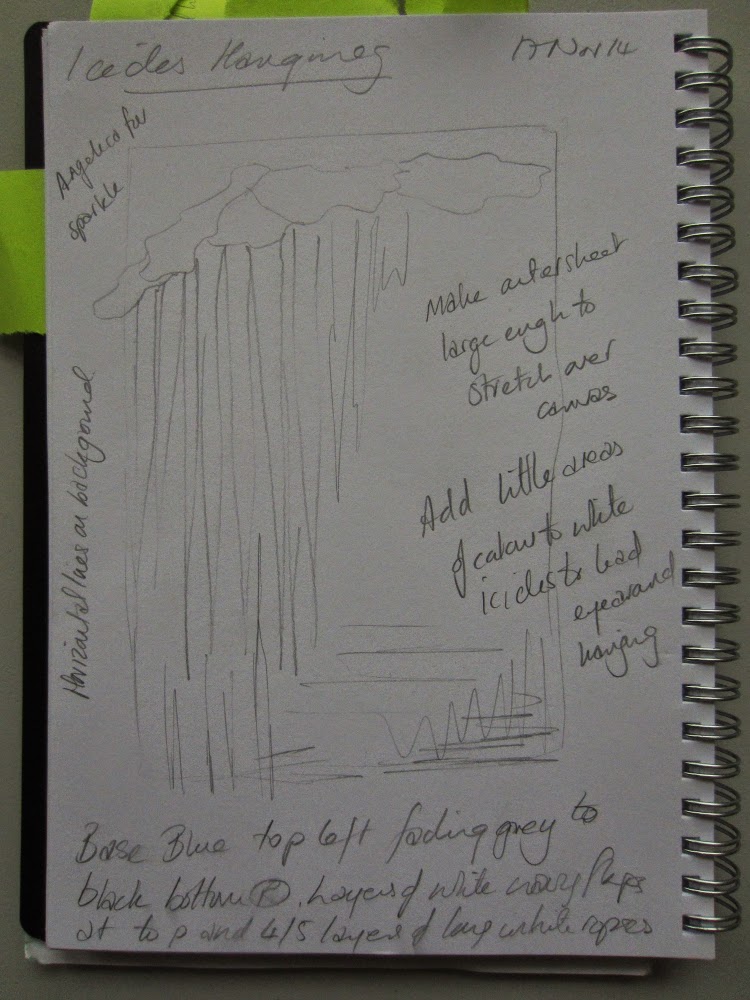 Icicles Hanging
Nov 14
Angelina for
sparkle
Make outer sheet
large engh to
stretch over
canvas
Horizontal lines on background
Add little areas
of colour to white
icicles to lead
eye around
hanging
Base Blue top left fading grey to
black bottom R. Layers of white wavy flaps
at top and 4/5 layers of long white ropes